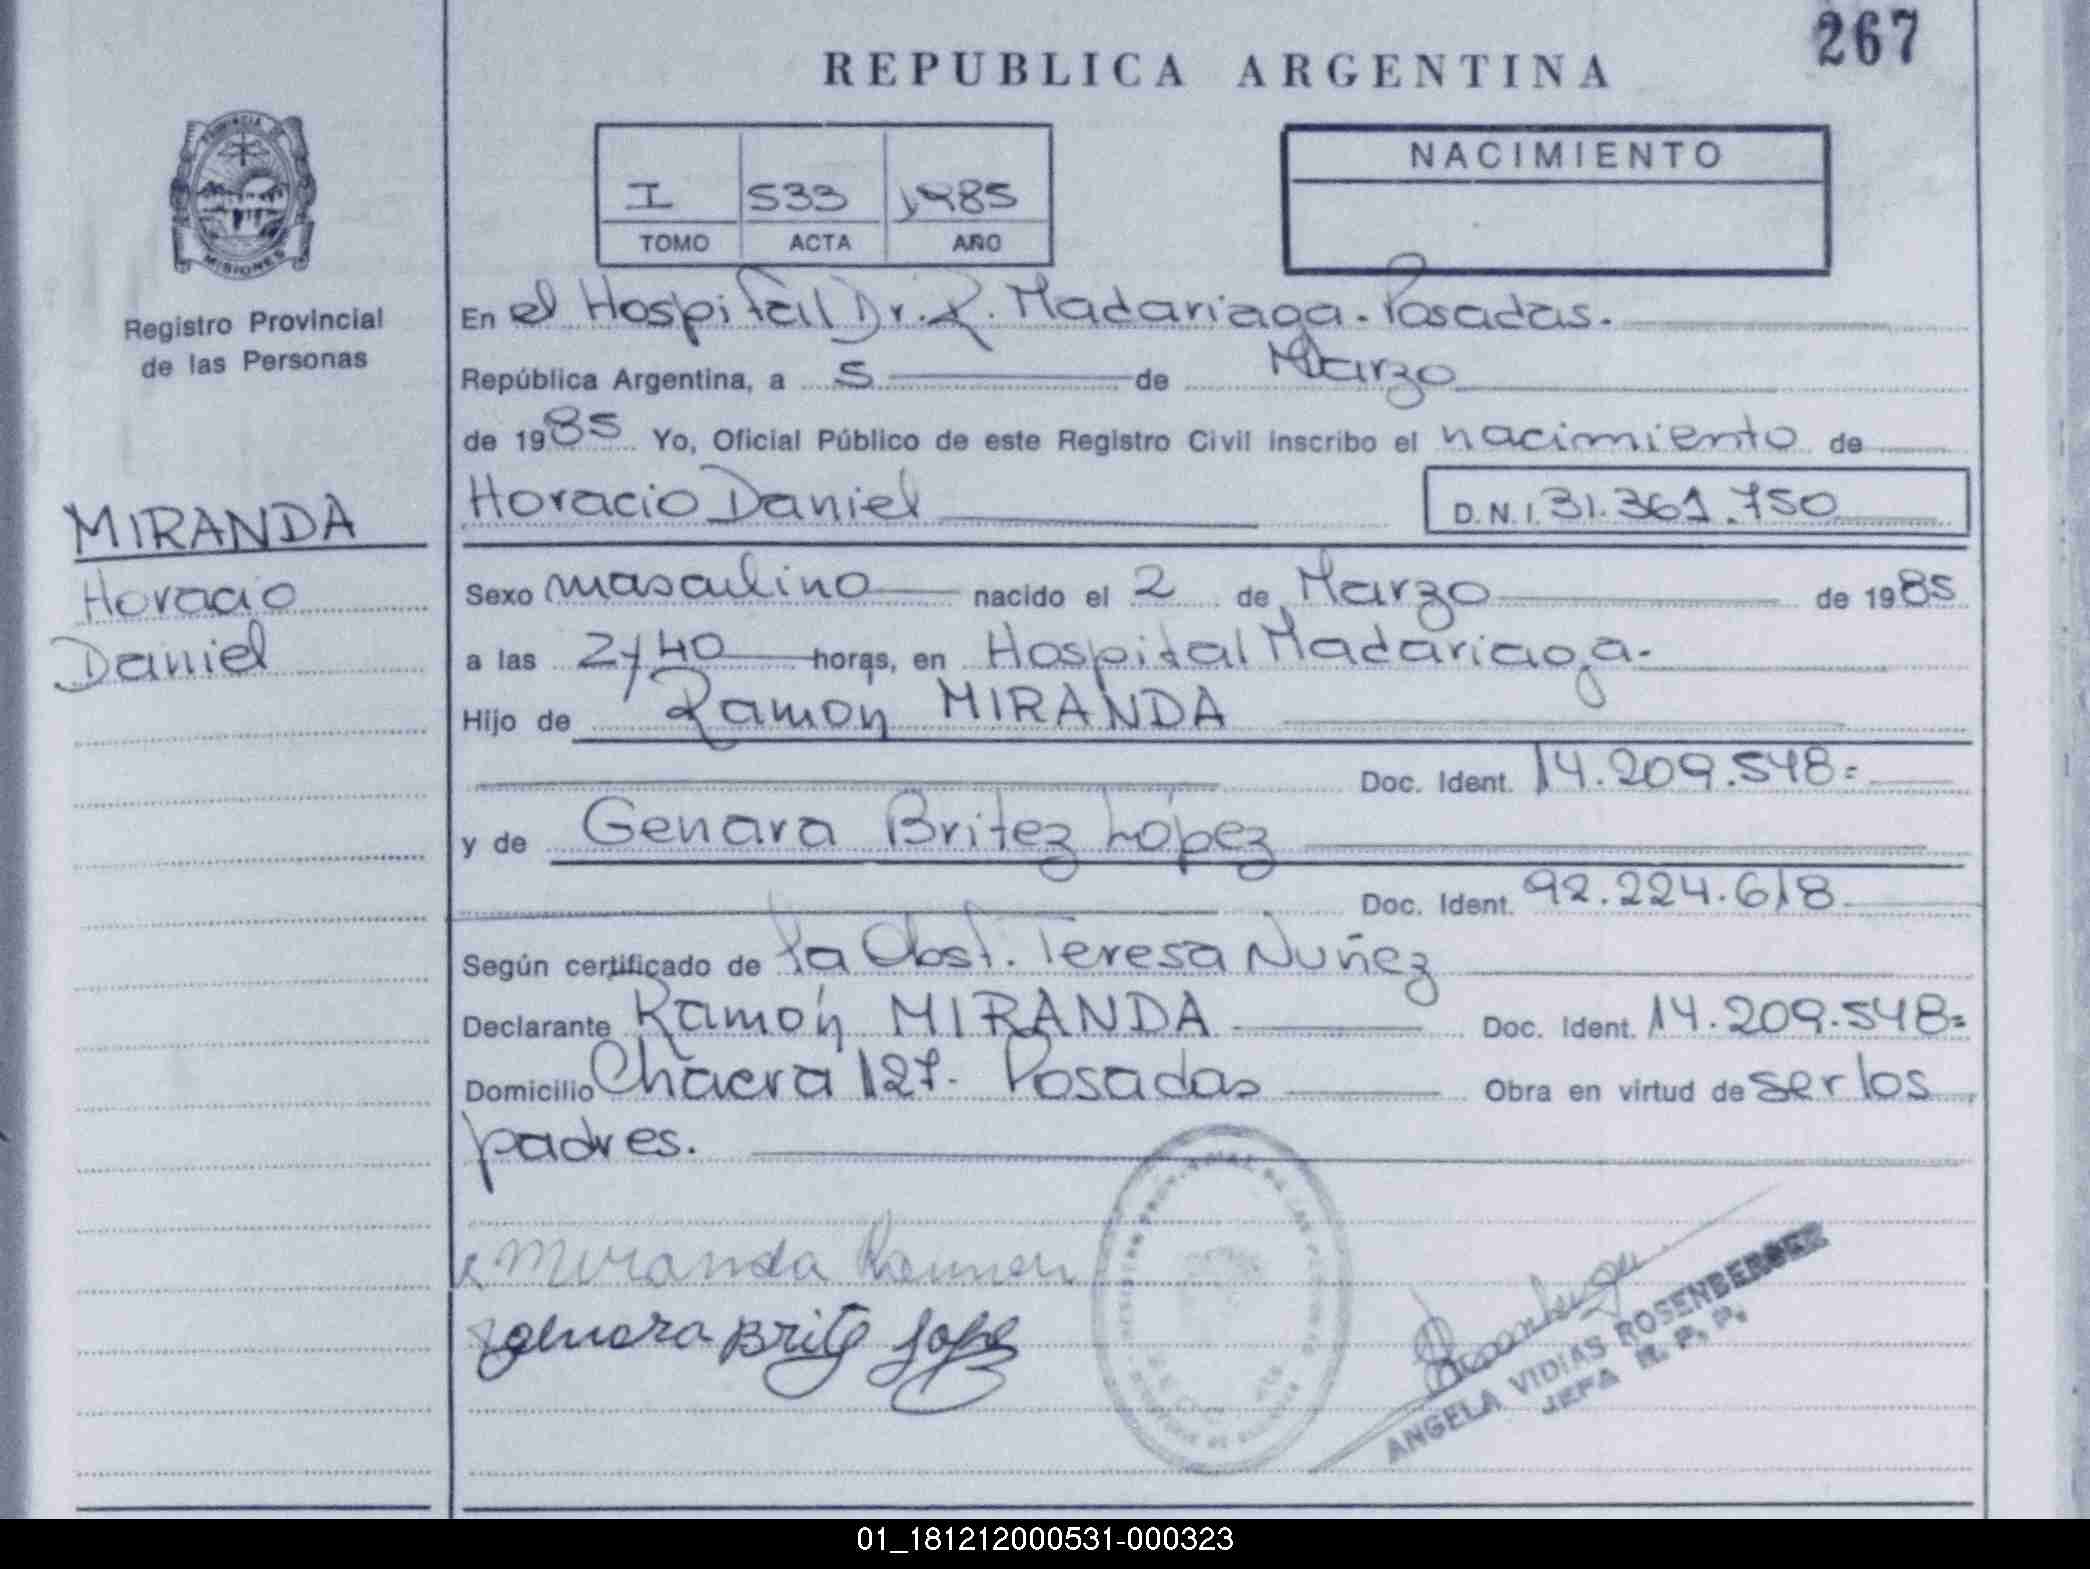 267
REPUBLICA ARGENTINA
PROVINCIA DE
MISIONES
Registro Provincial
de las Personas
I 533 1985
TOMO ACTA AÑO
NACIMIENTO
En el Hospital Dr. R. Madariaga. Posadas.
República Argentina, a 5 de Marzo
de 1985 Yo, Oficial Público de este Registro Civil inscribo el nacimiento de
Horacio Daniel D.N.I. 31.361.750
MIRANDA
Horacio
Daniel
Sexo masculino nacido el 2 de Marzo de 1985
a las 2y40 horas, en Hospital Madariaga.
Hijo de Ramón MIRANDA
Doc. Ident. 14.209.548=
y de Genara Britez López
Doc. Ident. 92.224.618
Según certificado de la Obst. Teresa Nuñez
Declarante Ramón MIRANDA Doc. Ident. 14.209.548=
Domicilio Chacra 127. Posadas Obra en virtud de ser los
padres.
Miranda Ramon
genara Brite Lope
ANGELA VIDIAS ROSENBERGER
JEFA R. P. P.
01_181212000531-000323